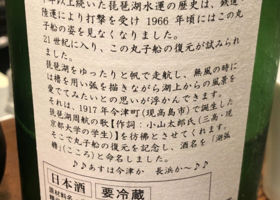 年以上続いた琵琶湖水運の歴史は、鉄道
陸運により打撃を受け 1966 年頃にはこの丸
子船の姿を見なくなりました。
21 世紀に入り、この丸子船の復元が試みら
れました。
琵琶湖をゆったりと帆で走航し、無風の時に
は櫓を用い弧を描きながら湖上からの風景を
愛でてみたいとの思いが浮かんできます。
それは、1917 年今津町（現高島市）で誕生した
琵琶湖周航の歌【作詞：小口太郎氏（三高・現
京都大学の学生）】を彷彿とさせてくれます。
そこで丸子船の復元を記念し、酒名を「湖弧
艪」（こころ）と命名しました。
♪♪あすは今津か 長浜か～♪♪
日本酒
要冷蔵